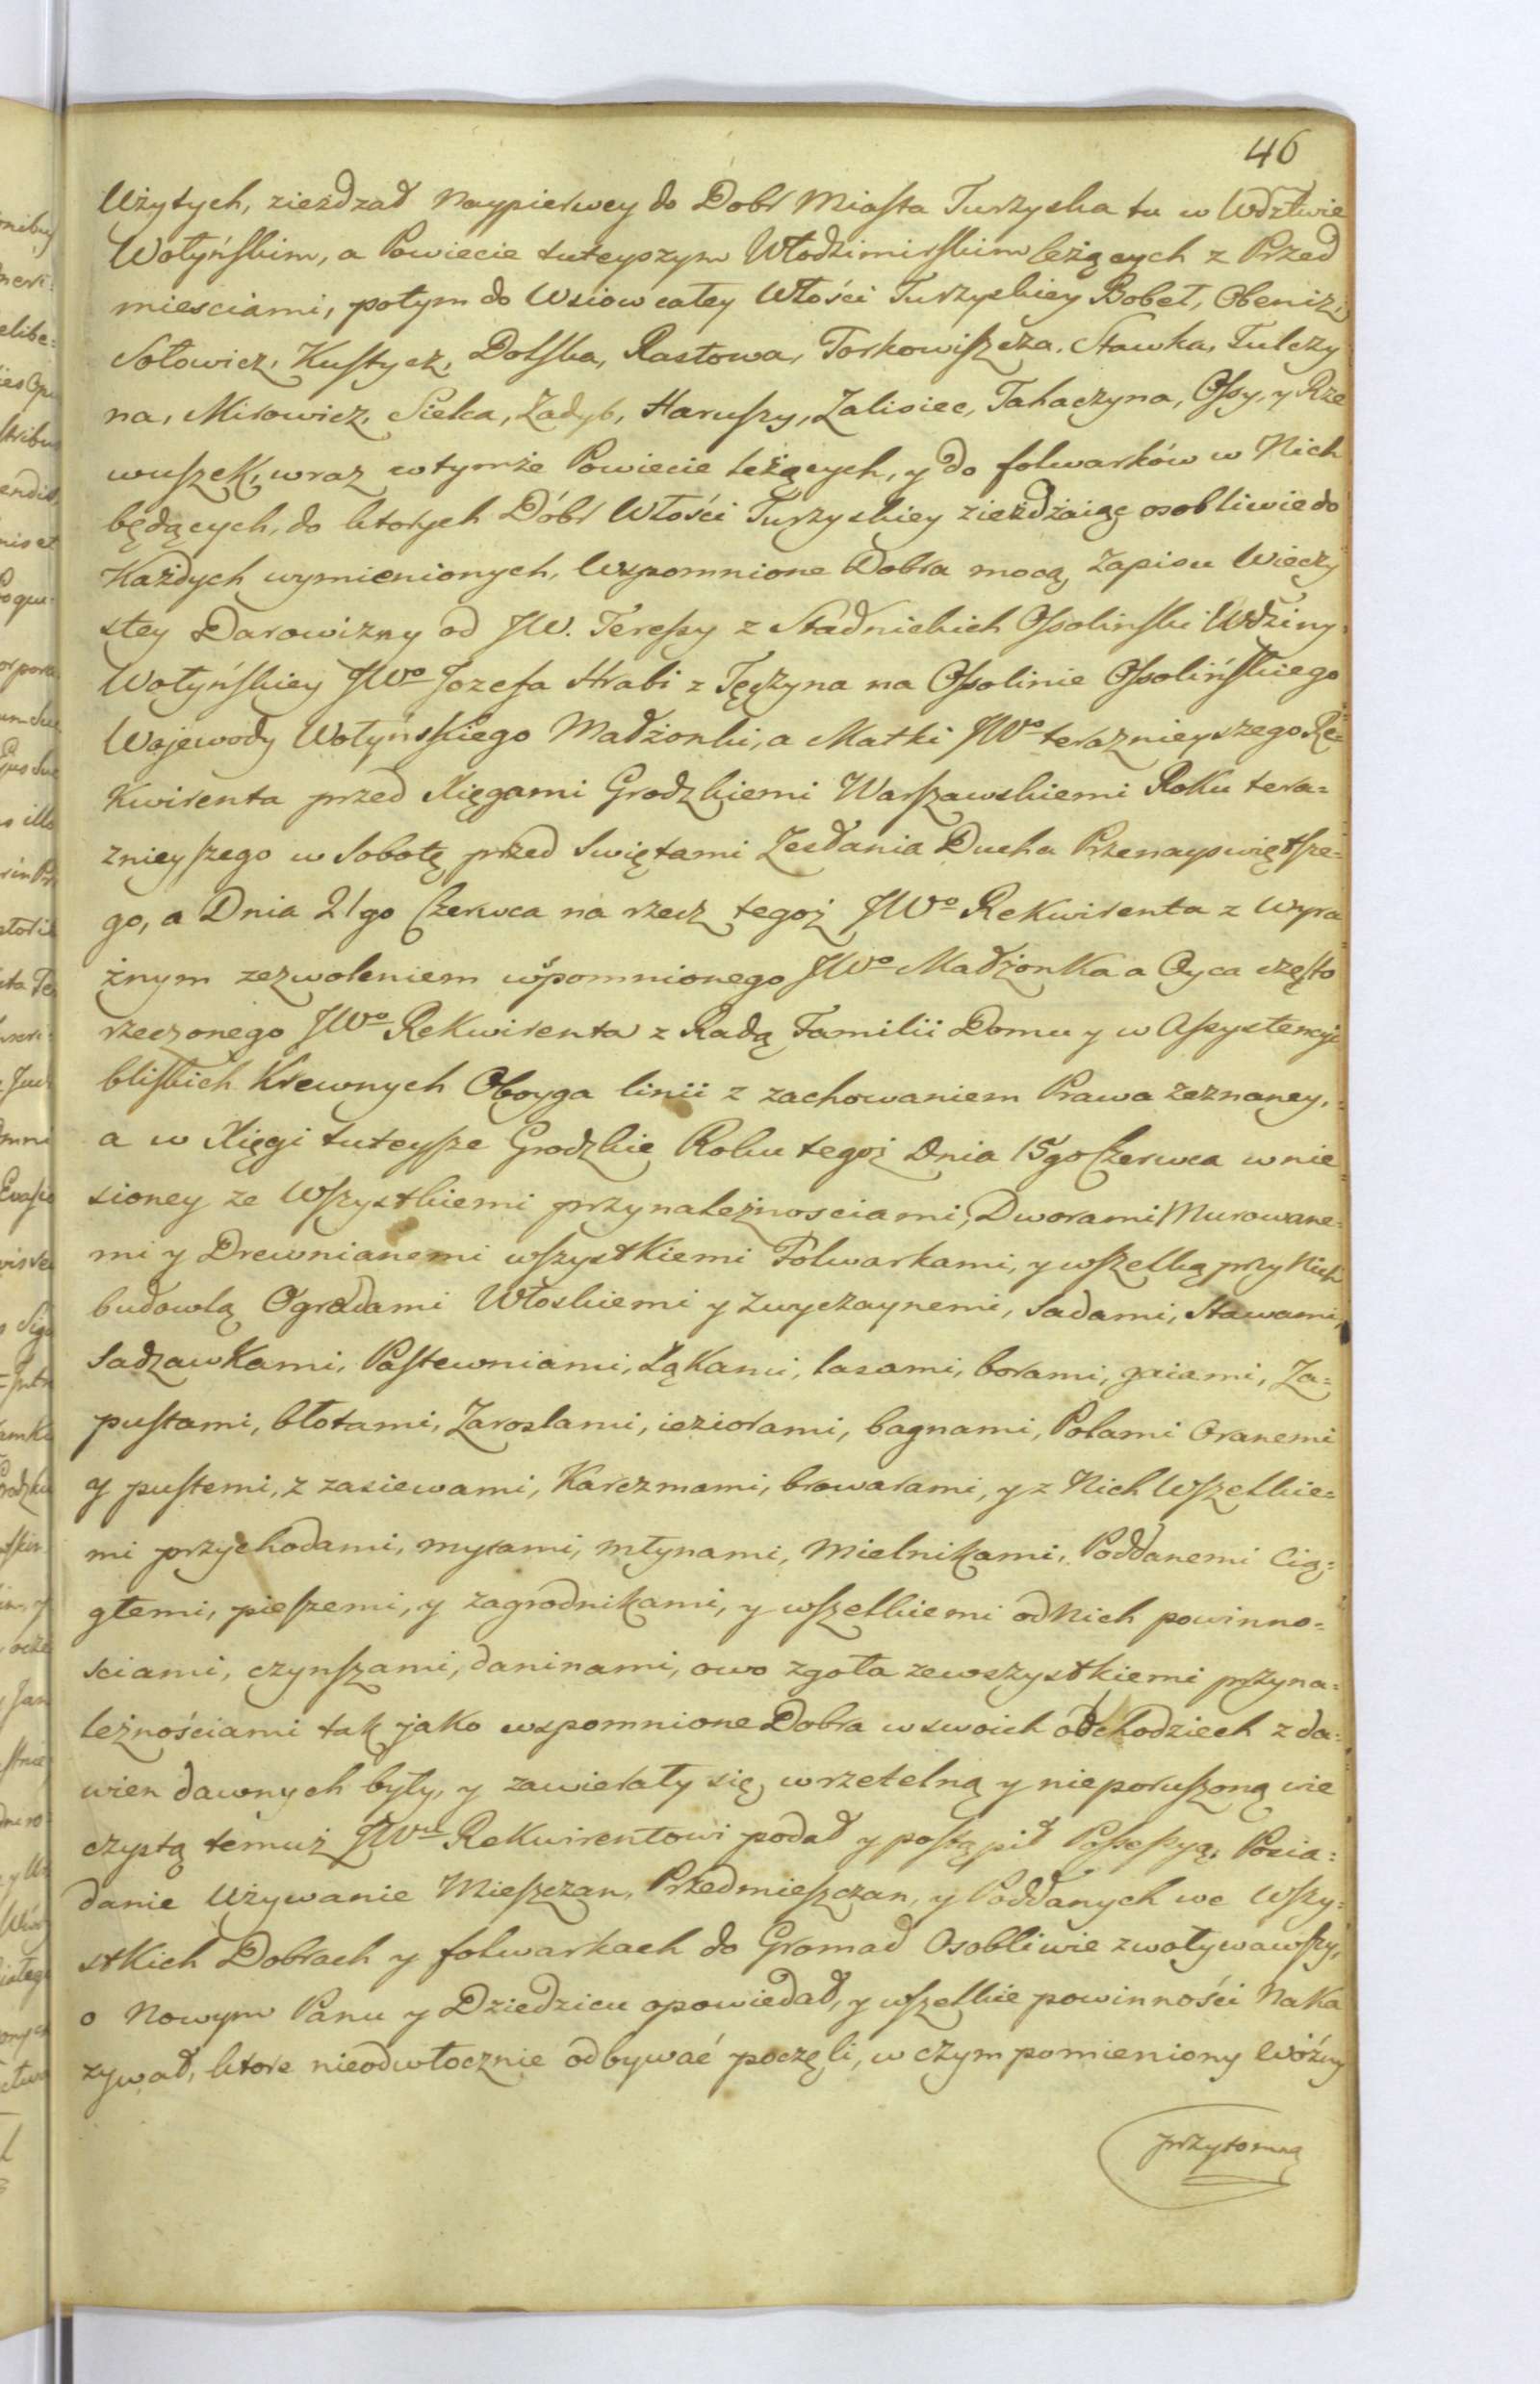 46
Użytych, zieżdzał naypierwey do Dobr Miasta Turzyska tu w Wdztwie
Wołyńskim, a Powiecie tuteyszym Włodzimirskim leżących z Przed
miesciami, potym do Wsiow całey Włości Turzyskiey Bobeł, Obeniz,
Sołowicz, Kustycz, Dolska, Rastowa, Torkowiszcza, Stawka, Tulczy
na, Mirowicz, Sielca, Zadyb, Haruszy, Zalisiec, Tahaczyna, Ossy, y Rze
wuszek, wraz wtymże Powiecie leżących, y do folwarków w Nich
będących, do ktorych Dóbr Włości Turzyskiey zieżdżaiąc osobliwie do
Każdych wymienionych, Wspomnione Dobra mocą Zapisu Wieczy
stey Darowizny od JW. Teressy z Stadnickich Ossolinski Wdziny
Wołyńskiey JWo Jozefa Hrabi z Tęczyna na Ossolinie Ossolińskiego
Wojewody Wołyńskiego Madżonki, a Matki JWo teraznieyszego Re=
Kwirenta przed Xięgami Grodzkiemi Warszawskiemi Roku tera=
znieyszego w Sobotę przed Swiętami Zesłania Ducha Przenayswiętsze=
go, a Dnia 21go Czerwca na rzecz tegoż JWo Rekwirenta z wyra
żnym zezwoleniem wspomnionego JWo Madżonka a Oyca często
rzeczonego JWo Rekwirenta z Radą Familii Domu y w Assystencyi
bliskich Krewnych Oboyga linii z zachowaniem Prawa zeznaney,
a w Xięgi tuteysze Grodzkie Roku tegoż Dnia 15go Czerwca wnie
sioney ze Wszystkiemi przynależnosciami, Dworami Murowane=
mi y Drewnianemi wszystkiemi Folwarkami, y wszelką przy Nich
budowlą Ogrodami Włoskiemi y zwyczaynemi, Sadami, Stawami,
Sadzawkami, Pastewniami, Łąkami, lasami, borami, gaiami, Za=
pustami, błotami, Zaroslami, ieziorami, bagnami, Polami Oranemi
y pustemi, z zasiewami, Karczmami, browarami, y z Nich Wszelkie=
mi przychodami, mytami, młynami, Mielnikami, Poddanemi Cią=
głemi, pieszemi, y zagrodnikami, y wszelkiemi od Nich powinno=
sciami, czynszami, daninami, owo zgoła zewszystkiemi przyna=
leżnościami tak jako wspomnione Dobra w swoich obchodziech z da=
wien dawnych były, y zawierały się, w rzetelną y nieporuszoną wie
czystą temuż JWu Rekwirentowi podał y postąpił Possessyą, Posia=
danie Używanie Mieszczan, Przedmieszczan, y Poddanych we Wszy=
stkich Dobrach y folwarkach do Gromad Osobliwie zwoływawszy,
o Nowym Panu y Dziedzicu opowiedał, y wszelkie powinności Naka
zywał, ktore nieodwłocznie odbywać poczęli, w czym pomieniony Wóźny
przytomną